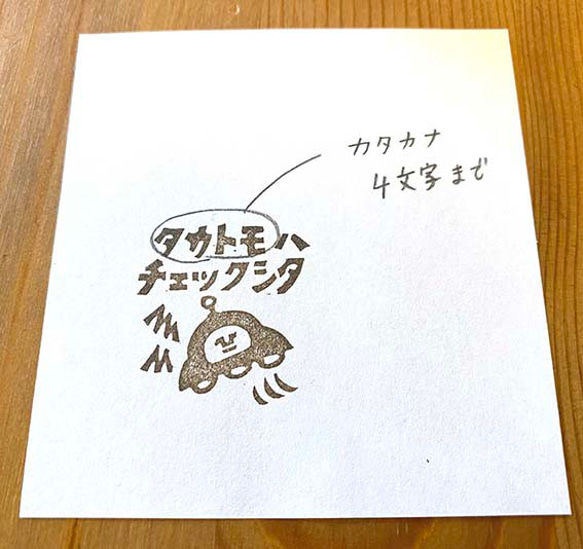 カタカナ
4文字まで
タカトモハ
チェックシタ